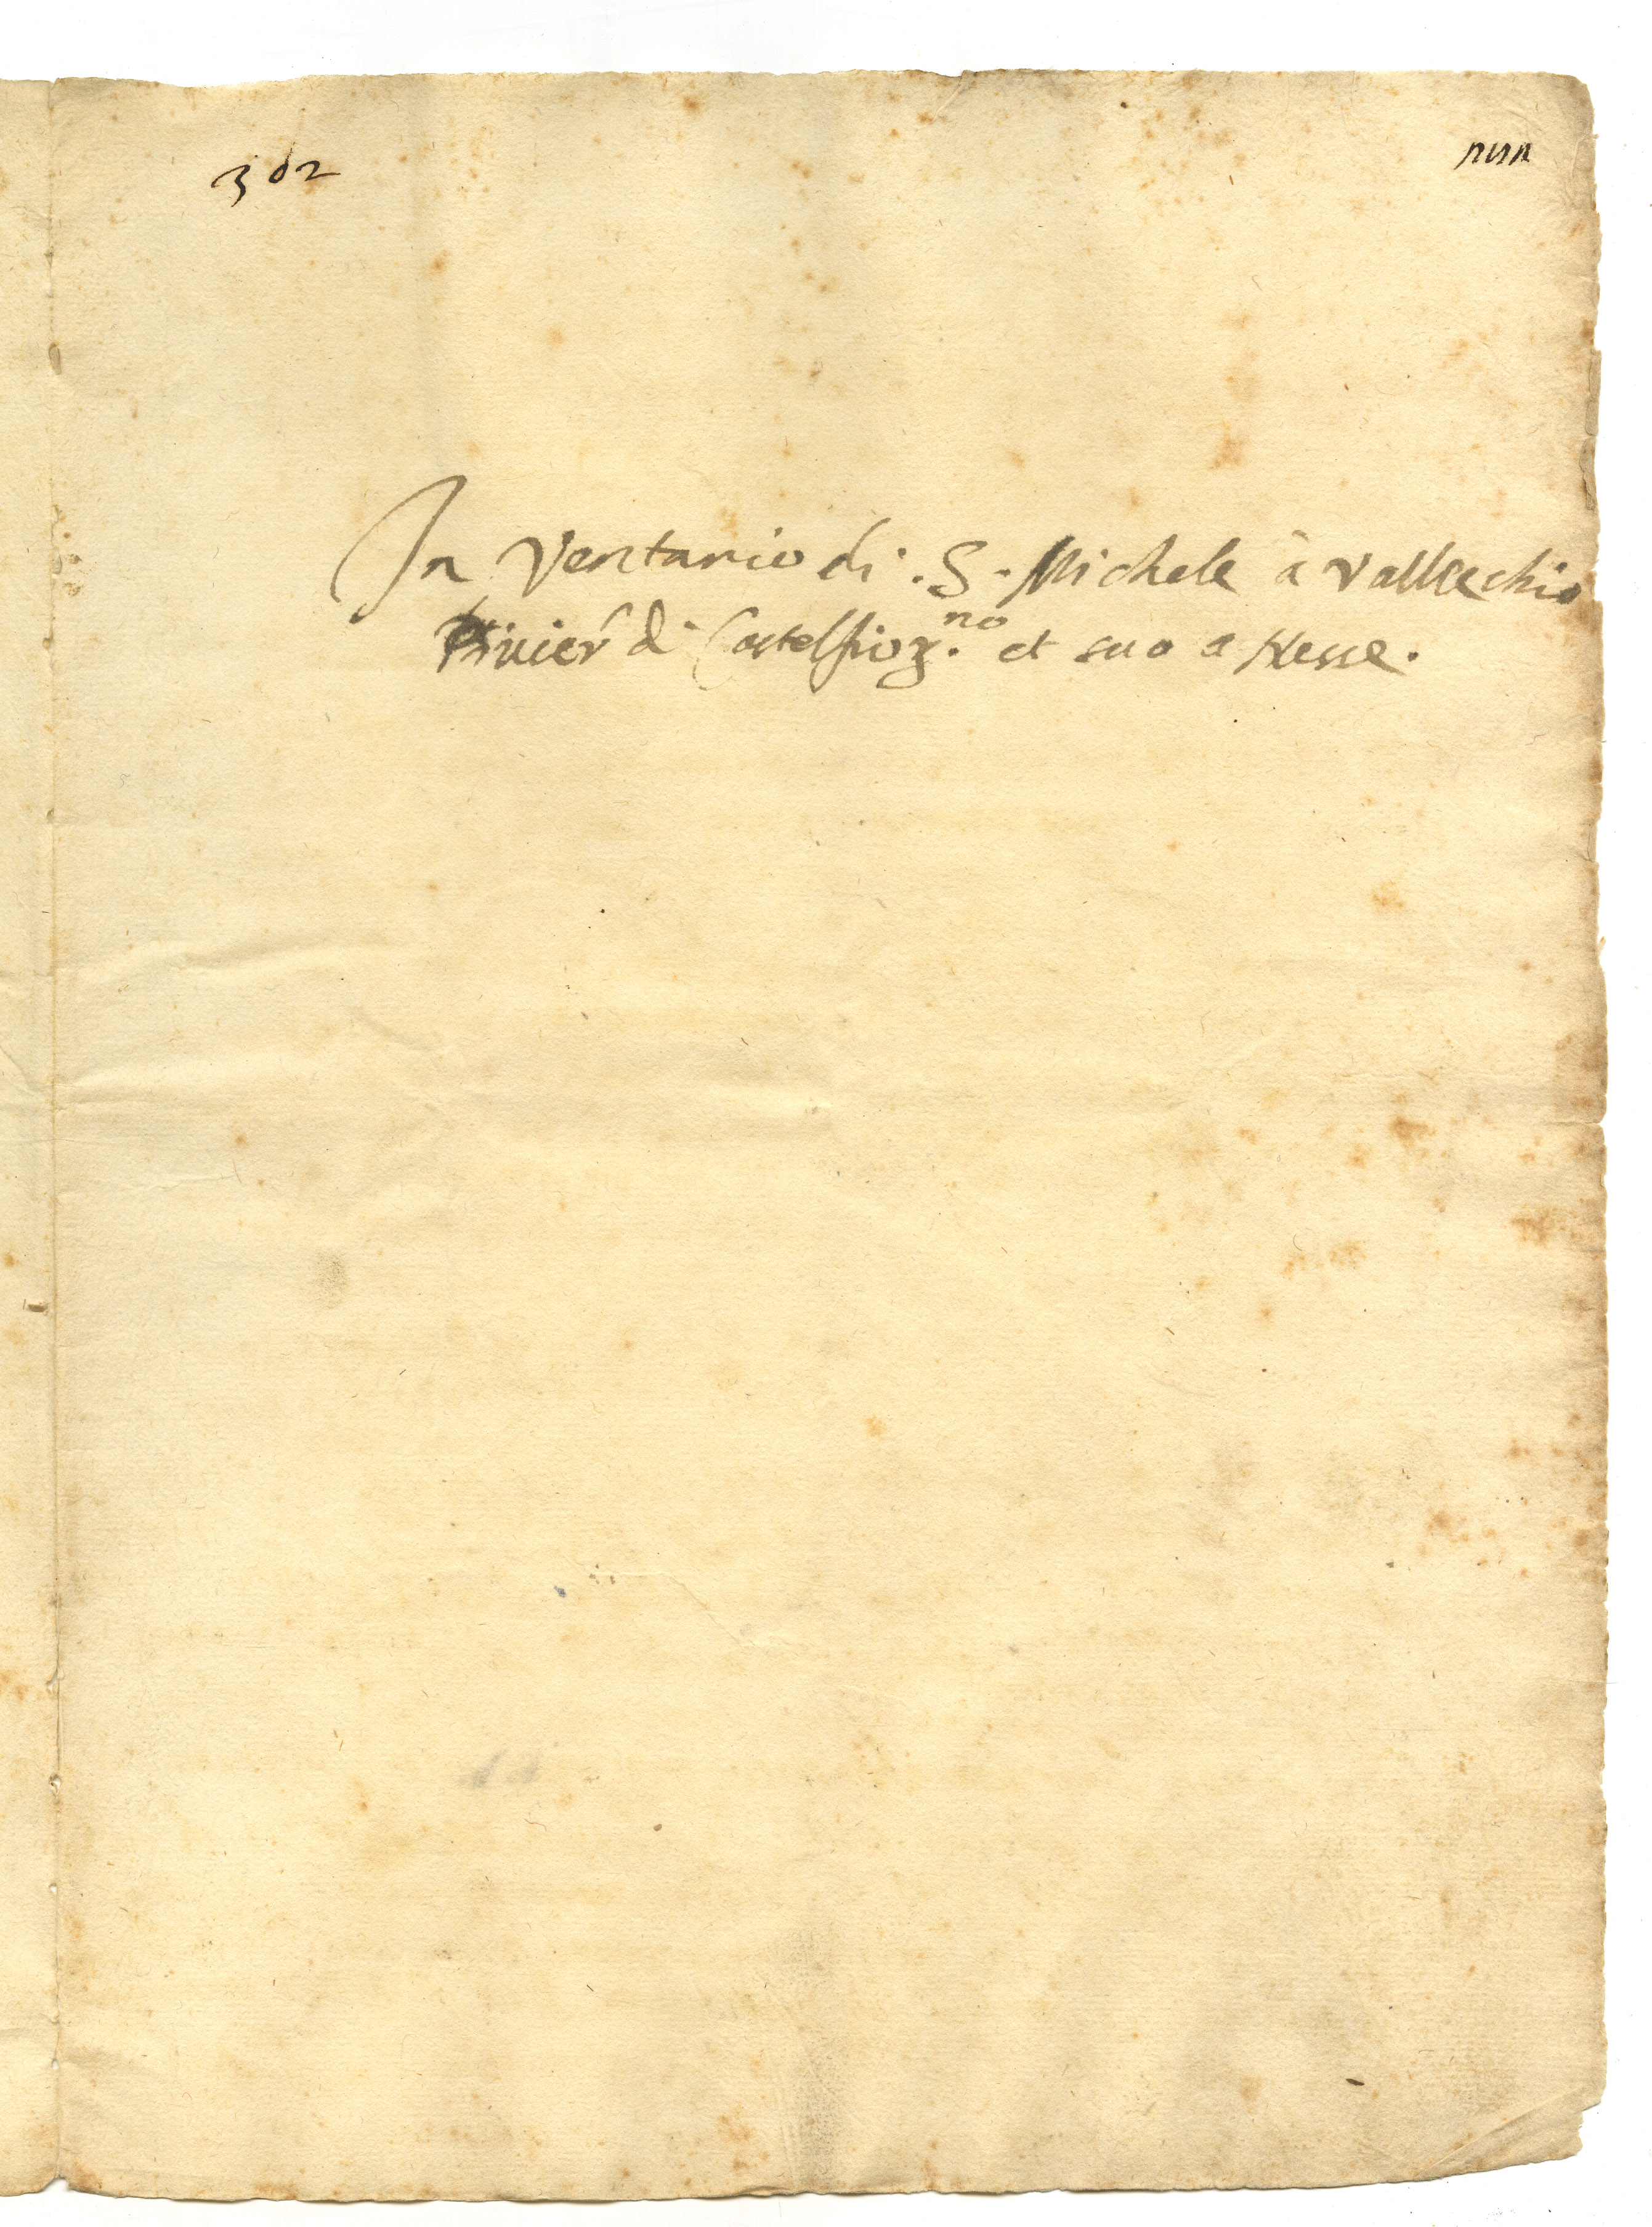 302
nnn
In Ventario di . S . Michele à Vallecchio
Pivier di Castelfior.no et suo anesse .